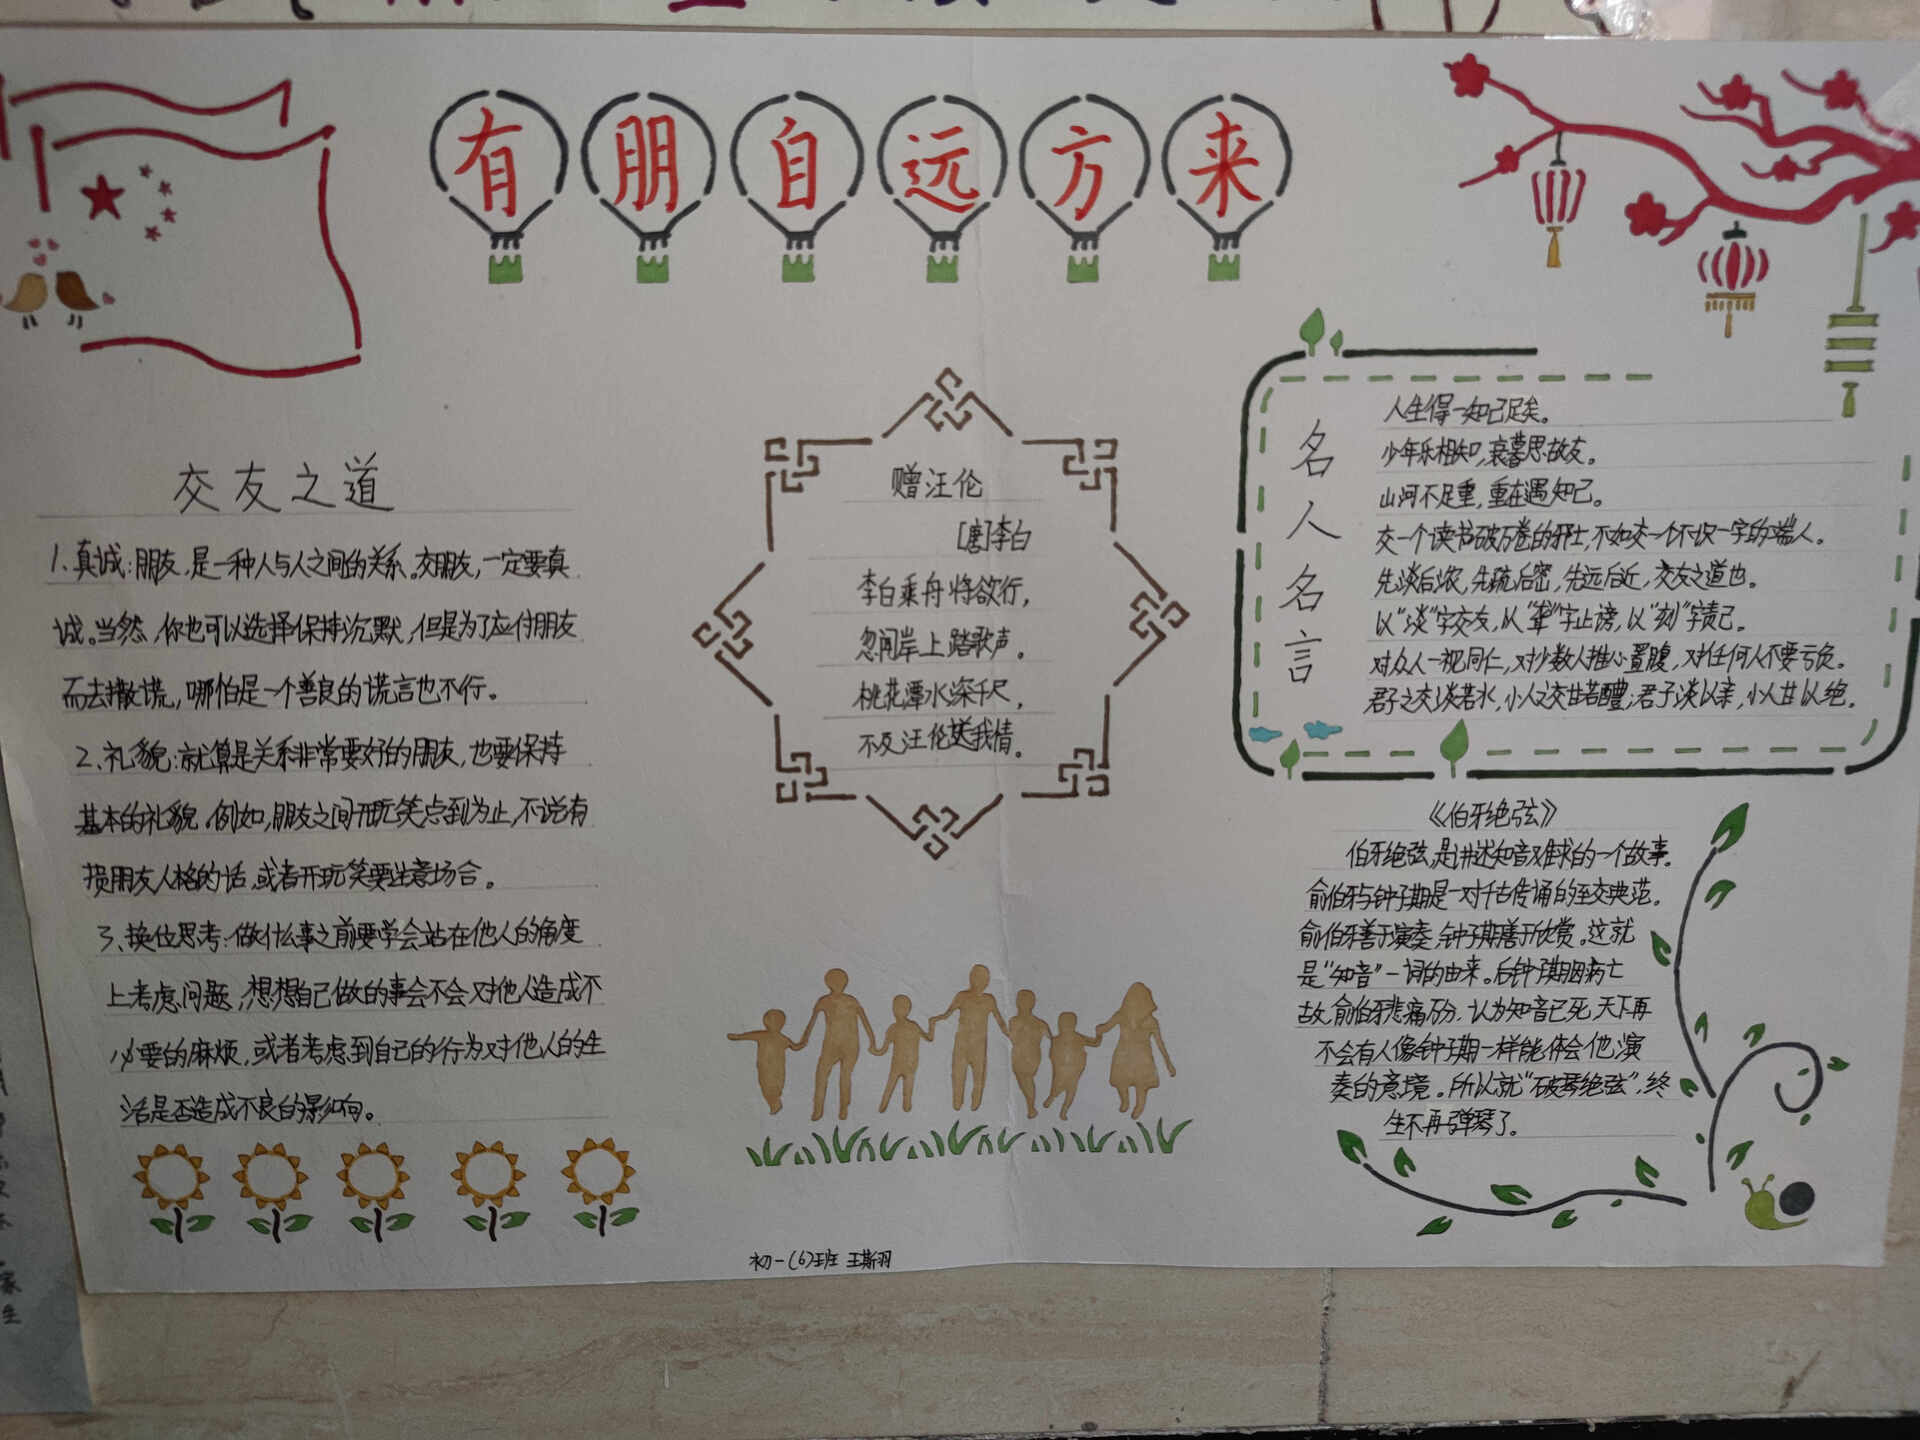 有朋自远方来
交友之道
1、真诚:朋友,是一种人与人之间的关系。交朋友,一定要真
诚。当然,你也可以选择保持沉默,但是为了应付朋友
而去撒谎,哪怕是一个善良的谎言也不行。
2、礼貌:就算是关系非常要好的朋友,也要保持
基本的礼貌。例如,朋友之间开玩笑点到为止,不说有
损朋友人格的话,或者开玩笑要注意场合。
3、换位思考:做什么事之前要学会站在他人的角度
上考虑问题,想想自己做的事会不会对他人造成不
必要的麻烦,或者考虑到自己的行为对他人的生
活是否造成不良的影响。
赠汪伦
[唐]李白
李白乘舟将欲行,
忽闻岸上踏歌声。
桃花潭水深千尺,
不及汪伦送我情。
名人名言
人生得一知己足矣。
少年乐相知,衰暮思故友。
山河不足重,重在遇知己。
交一个读书破万卷的邪士,不如交一个不识一字的端人。
先淡后浓,先疏后密,先远后近,交友之道也。
以“淡”字交友,以“聋”字止谤,以“刻”字责己。
对众人一视同仁,对少数人推心置腹,对任何人不要亏负。
君子之交淡若水,小人之交甘若醴;君子淡以亲,小人甘以绝。
《伯牙绝弦》
伯牙绝弦,是讲述知音难求的一个故事。
俞伯牙与钟子期是一对千古传诵的至交典范。
俞伯牙善于演奏,钟子期善于欣赏。这就
是“知音”一词的由来。后钟子期因病亡
故,俞伯牙悲痛万分,认为知音已死,天下再
不会有人像钟子期一样能体会他演
奏的意境。所以就“破琴绝弦”,终
生不再弹琴了。
初一(6)班 王斯羽